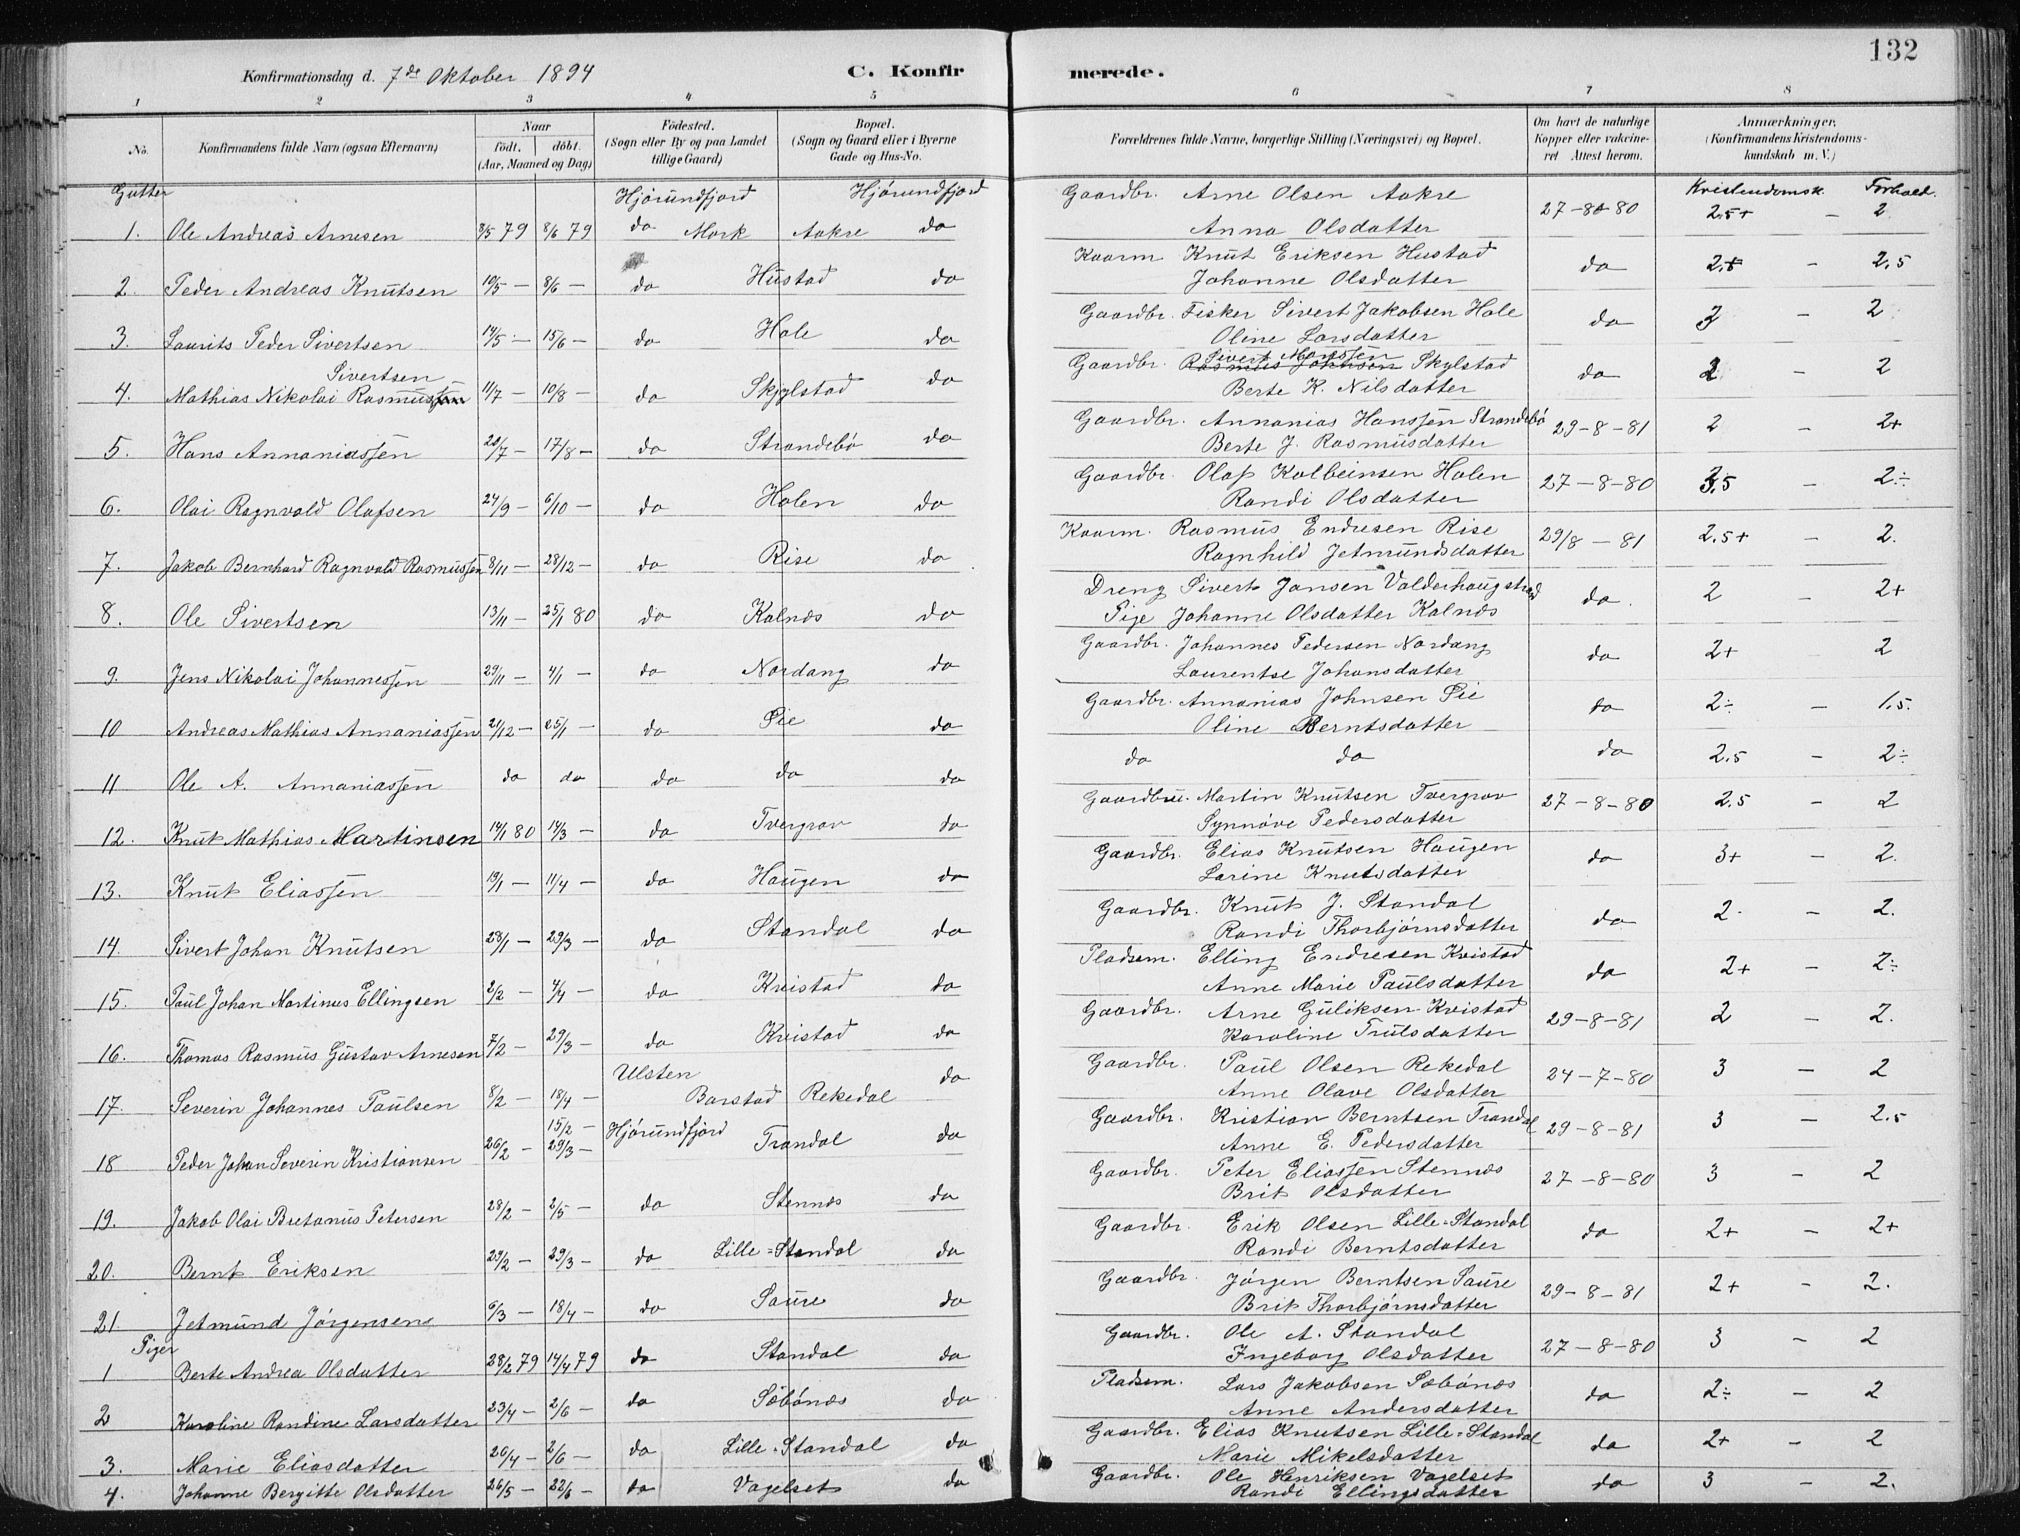 132
Konfirmationsdag d. 7de Oktober 1894 C. Konfirmerede.
1 2 3 4 5 6 7 8
No. Konfirmandens fulde Navn (ogsaa Efternavn) Naar födt. döbt. (Aar, Maaned og Dag) Födested. (Sogn eller By og paa Landet tillige Gaard) Bopæl. (Sogn og Gaard eller i Byerne Gade og Hus-No. Forældrenes fulde Navne, borgerlige Stilling (Næringsvei) og Bopæl. Om havt de naturlige Kopper eller vakcineret Attest herom. Anmærkninger. (Konfirmandens Kristendomskundskab m. V.)
Gutter Hjørundfjord Hjørundfjord Kristendomsk. Forhold.
1. Ole Andreas Arnesen 3/5 79 8/6 79 do Mork Aakre do Gaardbr. Arne Olsen Aakre 27-8-80 2.5+ - 2
Anna Olsdatter
2. Peder Andreas Knutsen 10/5 - 8/6 - do Hustad do Kaarm. Knut Eriksen Hustad do 2.5 - 2.5
Johanne Olsdatter
3. Laurits Peder Sivertsen 14/5 - 15/6 - do Hole do Gaardbr. Fisker Sivert Jakobsen Hole do 3 - 2
Oline Larsdatter
Sivertsen
4. Mathias Nikolai Rasmussen 11/7 - 10/8 - do Skylstad do Gaardbr. Sivert Monssen Rasmus Johnsen Skylstad do 2 - 2
Berte K. Nilsdatter
5. Hans Annaniassen 20/7 - 17/8 - do Strandebø do Gaardbr. Annanias Hanssen Strandebø 29-8-81 2 - 2+
Berte J. Rasmusdatter
6. Olai Ragnvald Olafsen 24/9 - 6/10 - do Holen do Gaardbr. Olaf Kolbeinsen Holen 27-8-80 3.5 - 2÷
Randi Olsdatter
7. Jakob Bernhard Ragnvald Rasmussen 8/11 - 28/12 - do Rise do Kaarm. Rasmus Endresen Rise 29/8-81 2.5+ - 2.
Ragnhild Jetmundsdatter
8. Ole Sivertsen 13/11 - 25/1 80 do Kalnæs do Dreng Sivert Jansen Valderhaugstrand do 2 - 2+
Pige Johanne Olsdatter Kalnæs
9. Jens Nikolai Johannessen 29/11 - 4/1 - do Nordang do Gaardbr. Johannes Pedersen Nordang do 2+ 2
Laurentse Johansdatter
10 Andreas Mathias Annaniassen 21/12 - 25/1 - do Sie do Gaardbr. Annanias Johnsen Sie do 2÷ - 1.5.
Oline Berntsdatter
11 Ole A. Annaniassen do do do do do do do do 2.5 - 2÷
12. Knut Mathias Martinsen 14/1 80 14/3 - do Tvergrov do Gaardbru. Martin Knutsen Tvergrov 27-8-80 2.5 - 2
Synnøve Pedersdatter
13. Knut Eliassen 19/1 - 11/4 - do Haugen do Gaardbr. Elias Knutsen Haugen do 3+ - 2.
Larine Knutsdatter
14. Sivert Johan Knutsen 28/1 - 29/3 - do Standal do Gaardbr. Knut J. Standal do 2. - 2.
Randi Thorbjørnsdatter
15. Paul Johan Martinus Ellingsen 2/2 - 4/4 - do Kvistad do Pladsm. Elling Endresen Kvistad do 2+ - 2÷
Anne Marie Paulsdatter
16. Thomas Rasmus Gustav Arnesen 7/2 - 29/3 - do Kvistad do Gaardbr. Arne Guliksen Kvistad 29-8-81 2 - 2.
Karoline Trulsdatter
17. Severin Johannes Paulsen 8/2 - 18/4 - Ulsten Barstad Rekedal do Gaardbr. Paul Olsen Rekedal 24-7-80 3 - 2
Anne Olave Olsdatter
15/2 -
18 Peder Johan Severin Kristiansen 26/2 - 29/3 - Hjørundfjord Trandal do Gaardbr. Kristian Berntsen Trandal 29-8-81 3 - 2.5
Anne E. Pedersdatter
19. Jakob Olai Bretanus Petersen 28/2 - 2/5 - do Stennæs do Gaardbr. Peter Eliassen Stennæs 27-8-80 3 - 2
Brit Olsdatter
20. Bernt Eriksen 29/2 - 29/3 - do Lille-Standal do Gaardbr. Erik Olsen Lille-Standal do 2+ - 2+
Randi Berntsdatter
21. Jetmund Jørgensen 6/3 - 18/4 - do Saure do Gaardbr. Jørgen Berntsen Saure 29-8-81 2+ - 2.
Brit Thorbjørnsdatter
Piger
1 Berte Andrea Olsdatter 28/2 79 14/4 79 do Standal do Gaardbr. Ole A. Standal 27-8-80 3 - 2
Ingeborg Olsdatter
2 Karoline Randine Larsdatter 23/4 - 2/6 - do Sæbønæs do Pladsm. Lars Jakobsen Sæbønæs do 2÷ - 2
Anne Andersdatter
3. Marie Eliasdatter 20/4 - 2/6 - do Lille-Standal do Gaardbr. Elias Knutsen Lille-Standal do 2+ - 2
Marie Mikelsdatter
4. Johanne Bergitte Olsdatter 26/5 - 22/6 - do Vagelset do Gaardbr. Ole Henriksen Vagelset do 3 - 2.
Randi Ellingsdatter